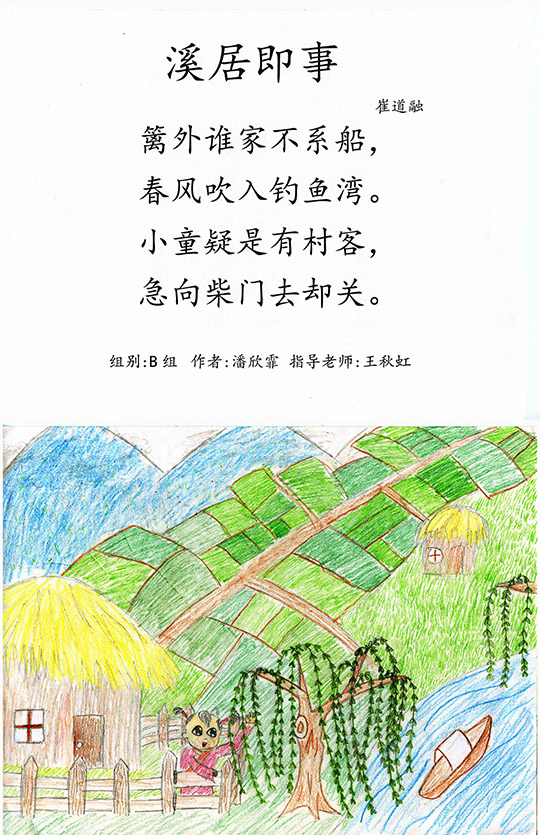 溪居即事
崔道融
篱外谁家不系船，
春风吹入钓鱼湾。
小童疑是有村客，
急向柴门去却关。
组别：B组 作者：潘欣霏 指导老师：王秋虹